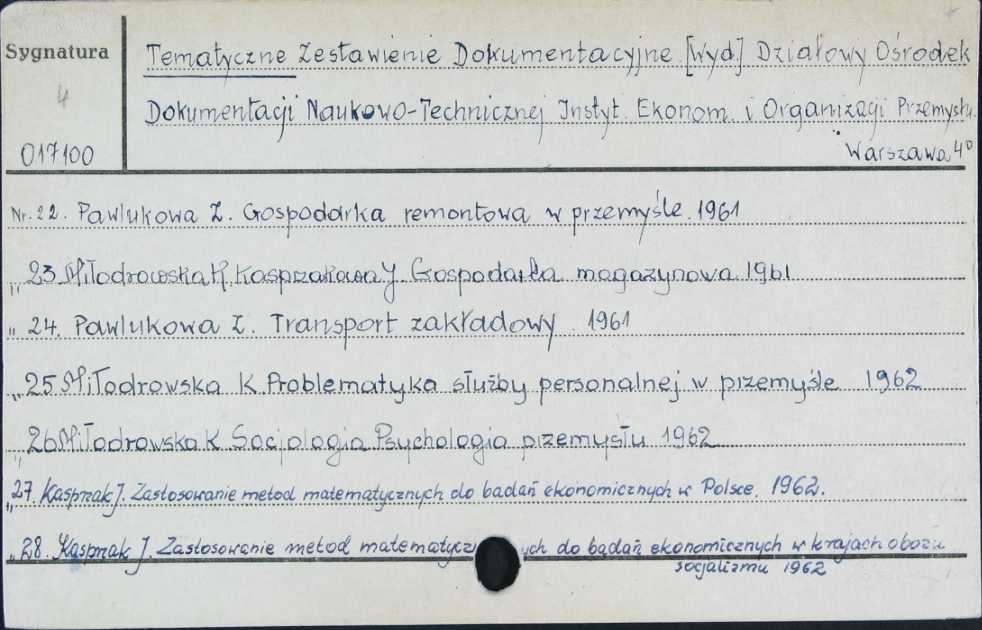 Sygnatura
4
017100
Tematyczne Zestawienie Dokumentacyjne. [Wyd.] Działowy Ośrodek
Dokumentacji Naukowo-Technicznej Instyt. Ekonom. i Organizacji Przemysłu.
Warszawa 4°
Nr. 22. Pawlukowa Z. Gospodarka remontowa w przemyśle. 1961
" 23 Miłodrowska K. Kasprzakowa J. Gospodarka magazynowa 1961
" 24. Pawlukowa Z. Transport zakładowy. 1961
" 25 Miłodrowska K. Problematyka służby personalnej w przemyśle 1962
" 26 Miłodrowska K Socjologia Psychologia przemysłu 1962
" 27. Kasprzak J. Zastosowanie metod matematycznych do badań ekonomicznych w Polsce. 1962.
" 28. Kasprzak J. Zastosowanie metod matematycz ych do badań ekonomicznych w krajach obozu
socjalizmu 1962